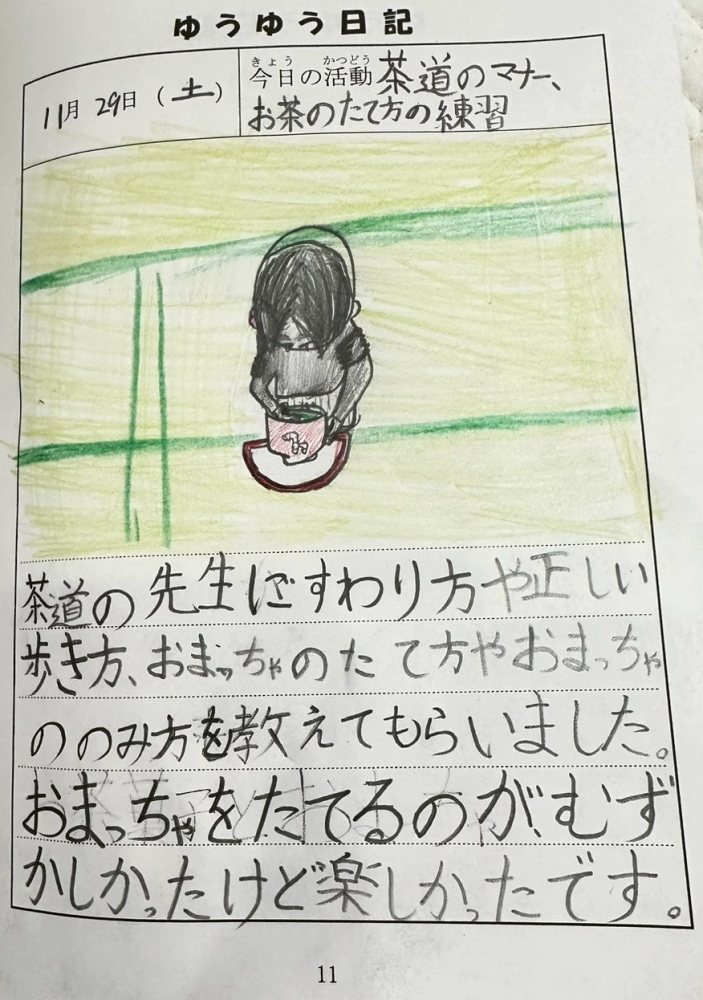 ゆうゆう日記
11月29日(土)
きょう かつどう
今日の活動 茶道のマナー、
お茶のたて方の練習
茶道の先生にすわり方や正しい
歩き方、おまっちゃのたて方やおまっちゃ
ののみ方を教えてもらいました。
おまっちゃをたてるのが、むず
かしかったけど楽しかったです。
11